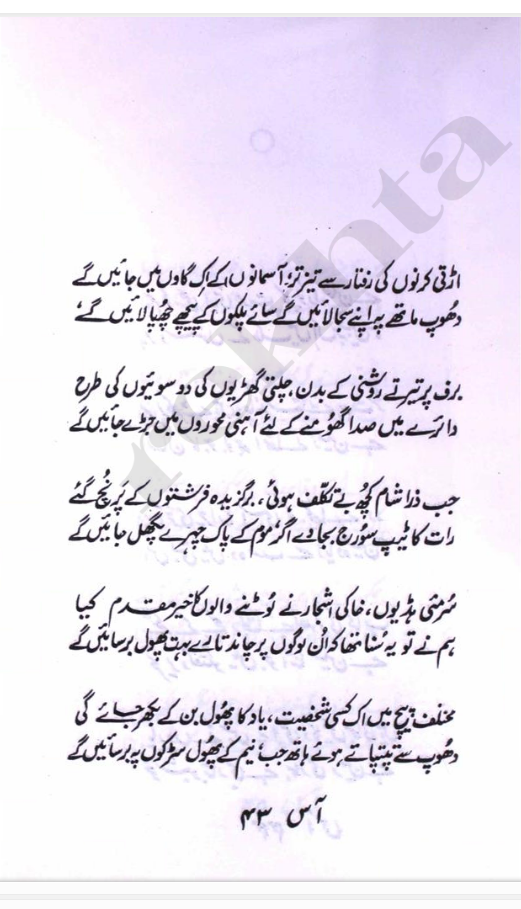 اڑتی کرنوں کی رفتار سے تیز تر، آسمانوں کے اِک گاؤں میں جائیں گے
دھُوپ ماتھے پہ اپنے سجا لائیں گے سائے پلکوں کے پیچھے چھُپا لائیں گے
برف پر تیرتے روشنی کے بدن، چلتی گھڑیوں کی دو سوئیوں کی طرح
دائرے میں صدا گھُومنے کے لئے آہنی محوروں میں جڑے جائیں گے
جب ذرا شام کچھ بے تکلف ہوئی، برگزیدہ فرشتوں کے پَر نُچ گئے
رات کا ٹیپ سُورج بجا دے اگر، موم کے پاک چہرے پگھل جائیں گے
سُرمئی ہڈیوں، خاکی اشجار نے لَوٹنے والوں کا خیر مقدم کیا
ہم نے تو یہ سُنا تھا کہ اُن لوگوں پر چاند تارے بہت پھول برسائیں گے
مختلف پیچ میں اک کسی شخصیت، یاد کا پھُول بن کے بکھر جائے گی
دھُوپ سے تپتپاتے ہوئے ہاتھ جب، نیم کے پھُول سڑکوں پہ برسائیں گے
آس ۴۳
rekhta